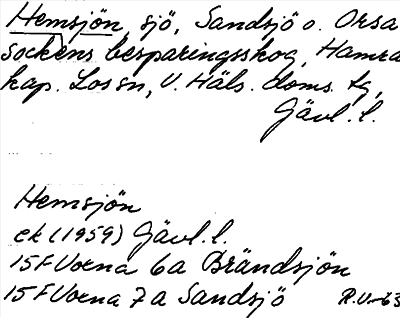 Hemsjön, sjö, Sandsjö o. Orsa
sockens besparingsskog, Hamra
kap. Los sn, V. Häls. doms. tg,
Gävl. l.
Hemsjön
ek (1959) Gävl. l.
15F Voxna 6a Brändsjön
15F Voxna 7a Sandsjö R.U-63